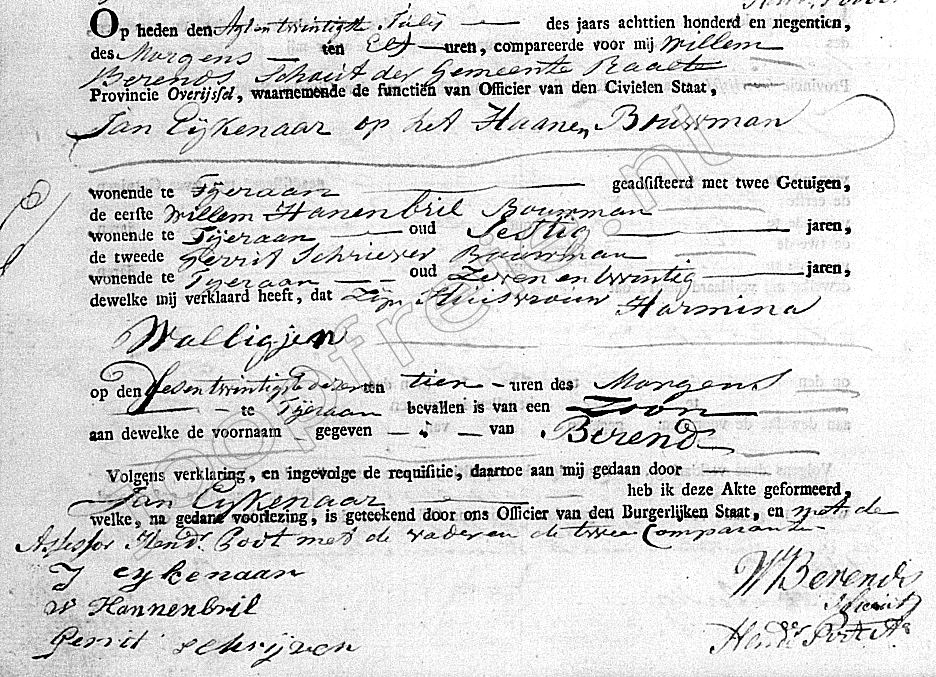 Op heden den Agt en twintigste Julij des jaars achttien honderd en negentien,
des Morgens ten Elf uren, compareerde voor mij Willem
Berends Schout der Gemeente Raalte
Provincie Overijssel, waarnemende de functien van Officier van den Civielen Staat,
Jan Eijkenaar op het Haanen Bouwman
wonende te Tijeraan geadsisteerd met twee Getuigen,
de eerste Willem Hanenbril Bouwman
wonende te Tijeraan oud Sestig jaren,
de tweede Gerrit Schriever Bouwman
wonende te Tijeraan oud Zeven en twintig jaren,
dewelke mij verklaard heeft, dat Zijn Huisvrouw Harmina
Walligjen
op den Sesentwintigste dezer ten tien uren des Morgens
te Tijeraan bevallen is van een Zoon
aan dewelke de voornaam gegeven van Berend
Volgens verklaring, en ingevolge de requisitie, daartoe aan mij gedaan door
Jan Eijkenaar heb ik deze Akte geformeerd,
welke, na gedane voorlezing, is geteekend door ons Officier van den Burgerlijken Staat, en met de
Assessor Hendk Poot met de vader en de twee Comparante
J eykenaar
W Hannenbril
Gerrit schrijver
W Berends
Schout
Hendk Poot As
genopfreie.nl